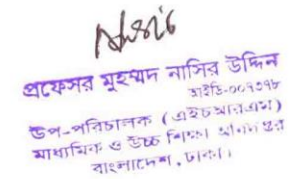 প্রফেসর মুহম্মদ নাসির উদ্দিন
আইডি-০০৭৩৭৮
উপ-পরিচালক (এইচআরএম)
মাধ্যমিক ও উচ্চ শিক্ষা অধিদপ্তর
বাংলাদেশ, ঢাকা।